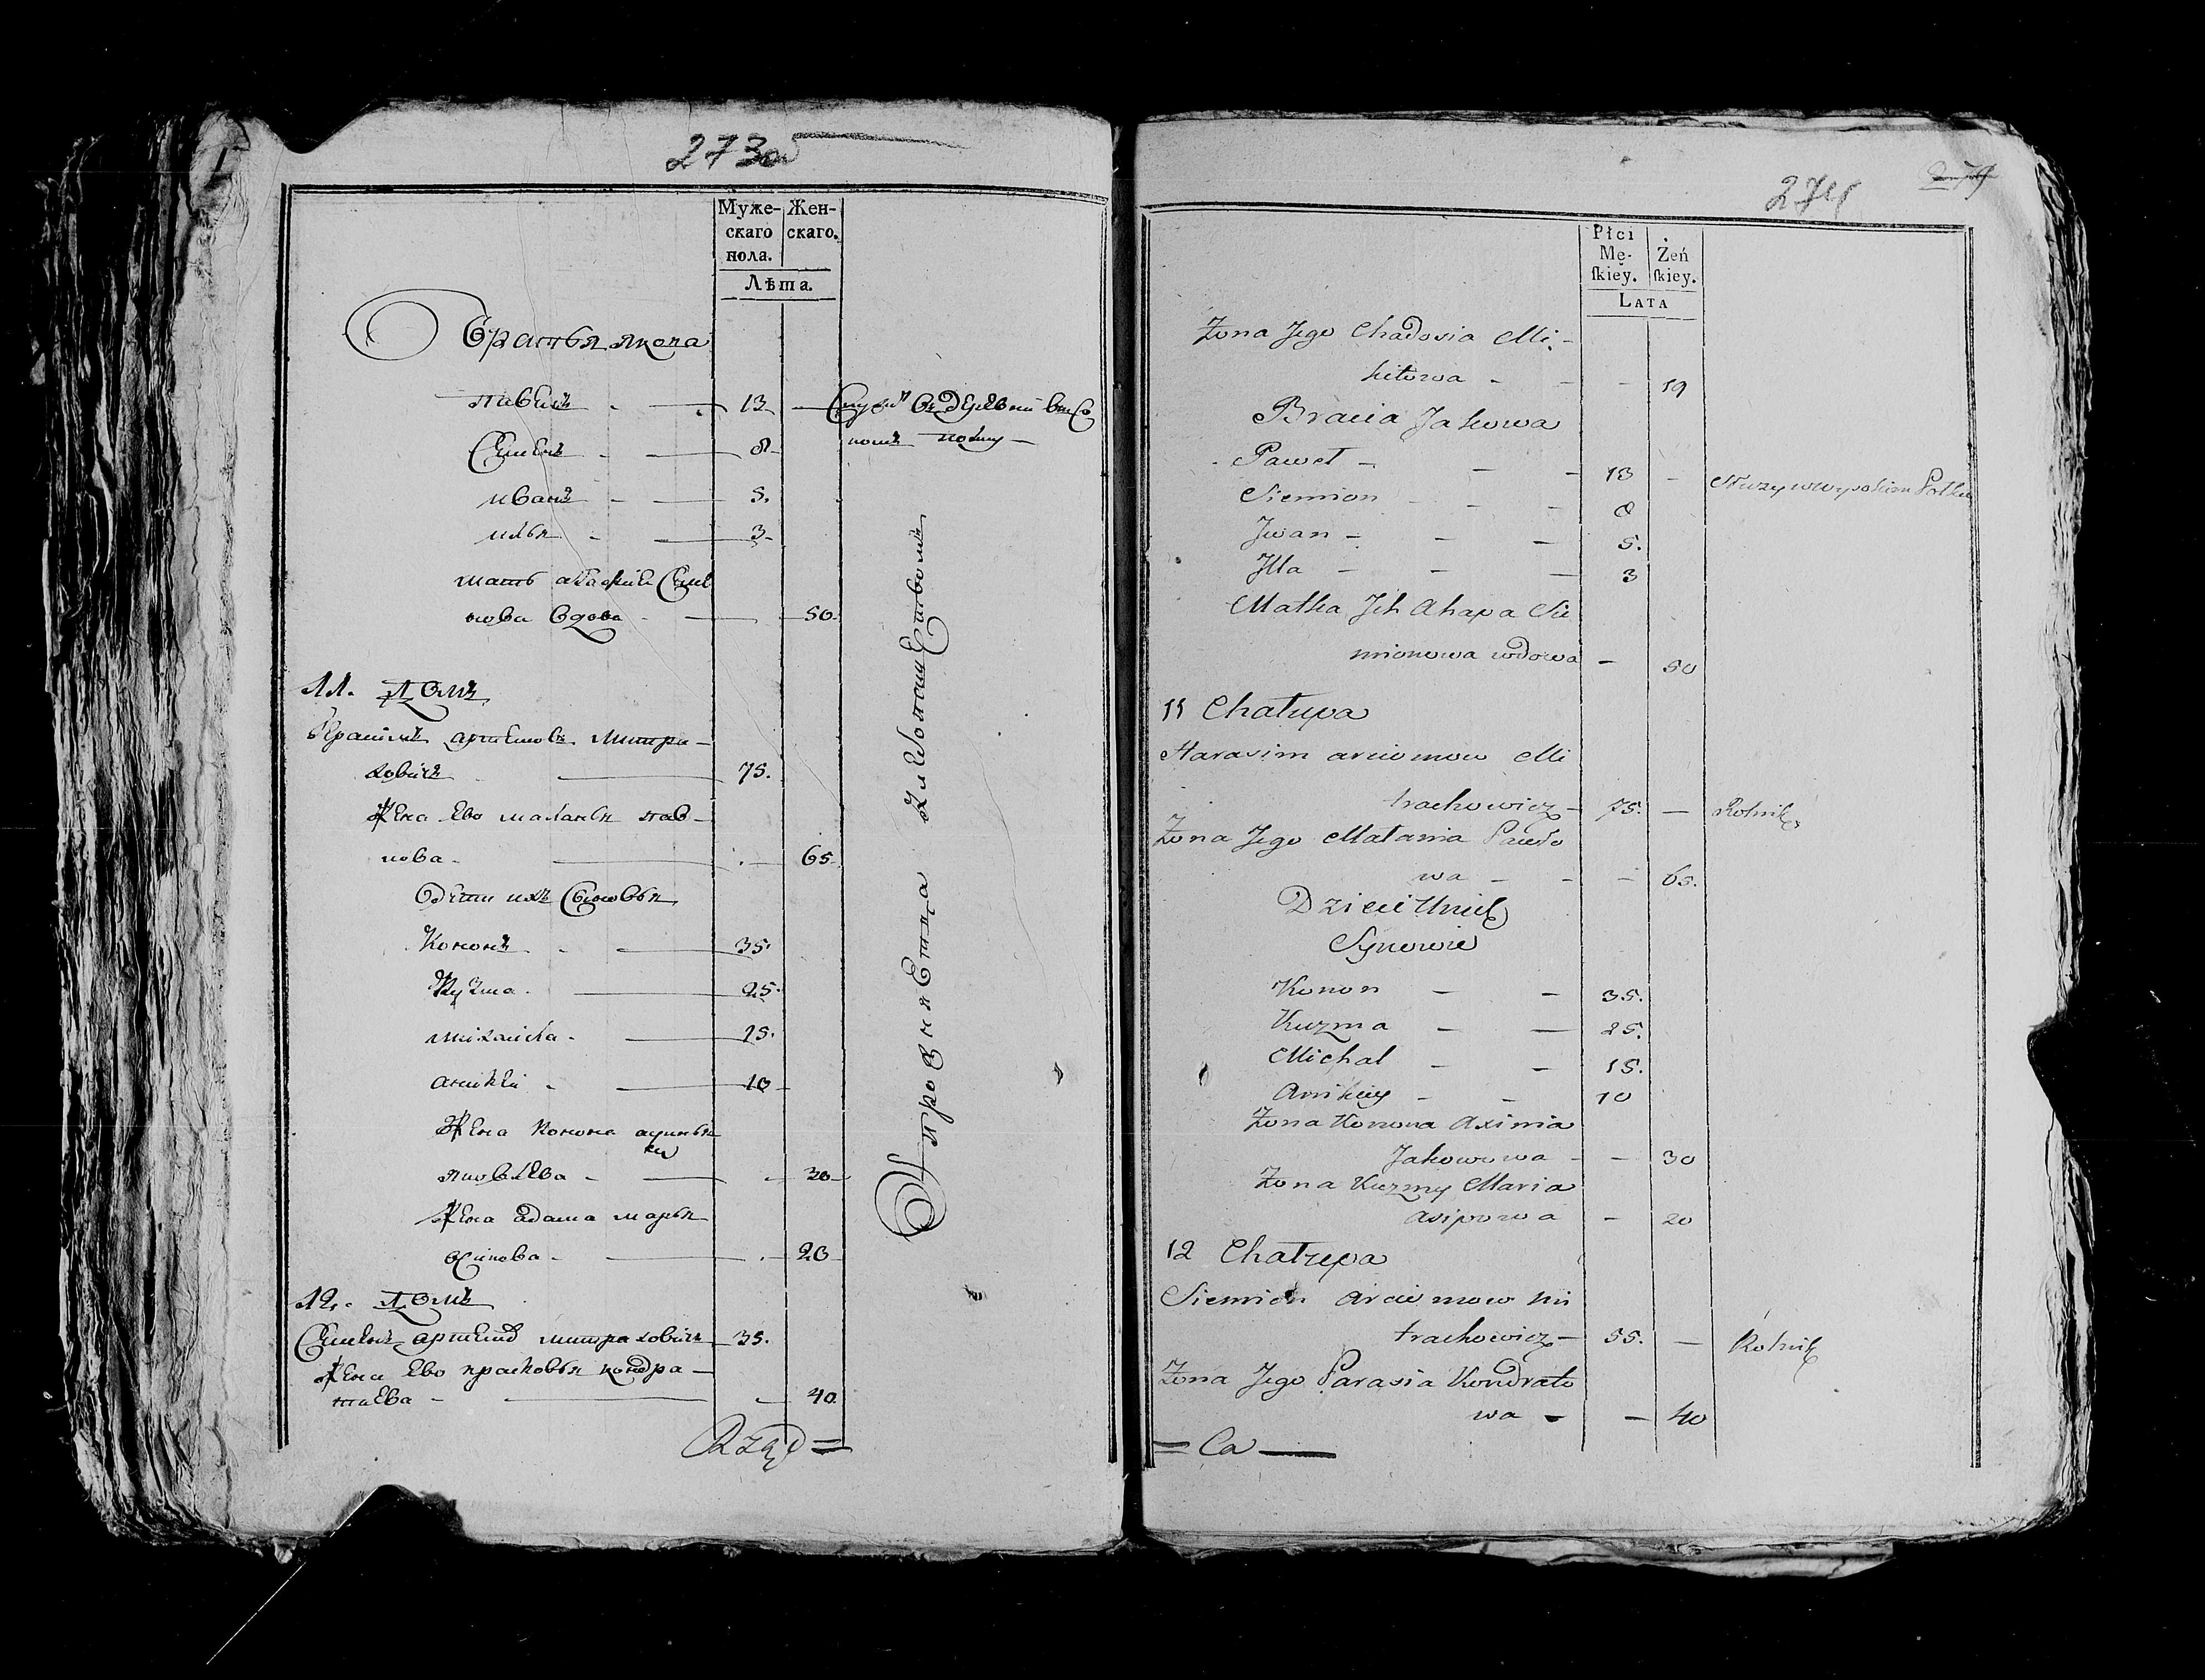 273об
Муже-
скаго
пола.
Жен-
скаго.
Лѣта.
Братья якова
павелъ - — 13
Служитъ въ деревни высо
комъ полку —
Семенъ - — 8
иванъ - — 5.
илья - — 3
мать агафия Семе
нова вдова - — 50.
11. Домъ
Герасимъ артемовъ митра-
ховичъ — 75.
Жена ево маланья пав-
лова - — 65.
Дети ихъ Сыновья
Кононъ - — 35.
Кузма - — 25.
михайла - — 15.
аникей - — 10
Жена конона аксинья
яковлева - — 30
Жена адама марья
осипова - — 20
12. Домъ
Семенъ артемов митраховичъ 35.
Жена ево прасковья кондра-
тьева - — 40
Rząd =
274
Płci
Mę-
ſkiey.
Żeń
ſkiey.
LATA
Żona Jego Chadosia Mi-
kitowa - — - 19
Bracia Jakowa
Paweł - — - 13 - Służy w wysokim Połku
Siemion - - — 8
Jwan - - — 5.
Jlla - - — 3
Matka Jch Ahapa Sie
mionowa wdowa — 50
11 Chałupa
Harasim arciomow Mi
trachowicz - 75. — Rolnik
Żona Jego Małania Pawło
wa - - — 65.
Dzieci Unich
Synowie
Konon - - 35.
Kuzma - — 25.
Michał - - 15.
Anikiey - - 10
Żona Konona Axinia
Jakowowa - - 30
Żona Kuzmy Maria
asipowa - 20
12 Chałupa
Siemion Arciemow Mi
trachowicz - 55. — Rolnik
Żona Jego Parasia Kondrato
wa - — 40
= Ca —